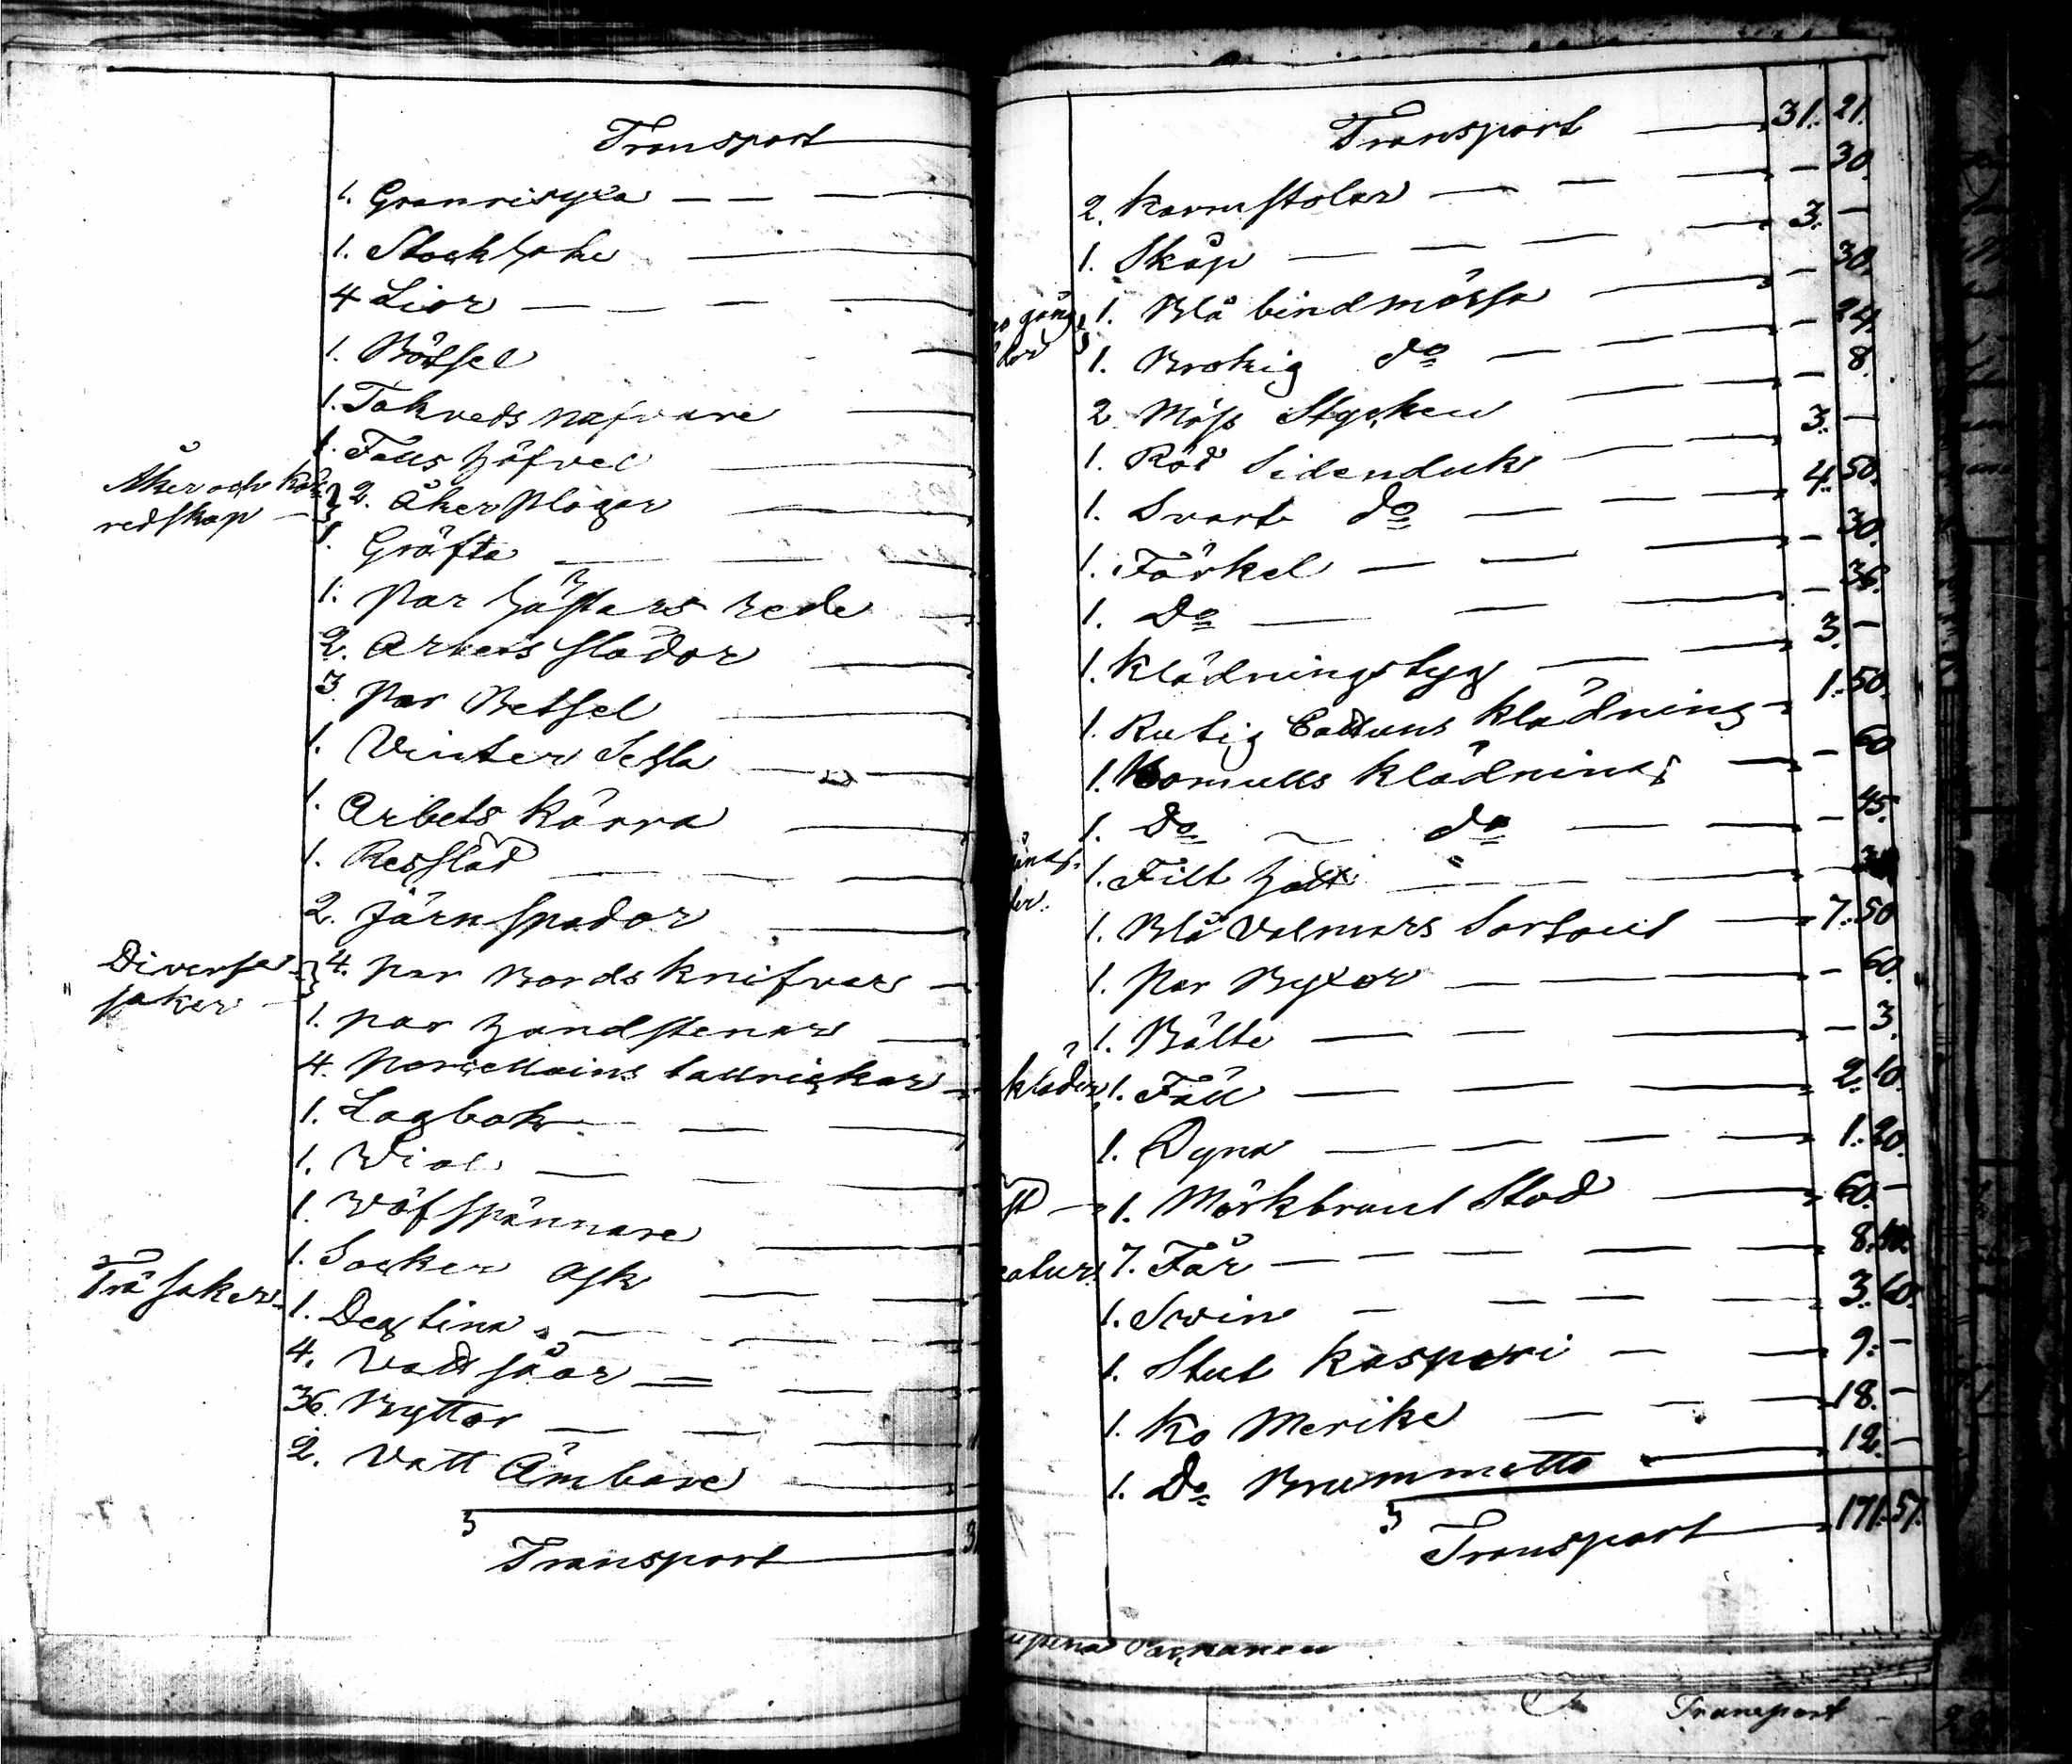 Transport
1. Granrisyxa
1. Stockhake
4 Lior
1. Bössel
1. Takveds nafvare
1. Falls höfvel
Åker och kör
redskap
2. Åker Plogar
1. Gräfta
1. Par hästars rede
2. Arbets slädor
3 Par Betsel
1. Vinter Sehla
1. Arbets kärra
1. Resslad
2. järn spador
Diverse
saker
4. par Bords knifvar
1. par handstenar
4. Porcellains tallrickar
1. Lagbok
1. Viol
1. Väfspännare
1. Socker ask
Trä saker
1. Degtina
4. Vatt såar
36. Byttor
2. Vatt Ämbare
Transport
Transport 31. 21.
2. karmstolar – 30.
1. Skåp 3. –
gång
1. Blå bindmössa – 30.
1. Brokig do – 24.
2 Möss Stycken – 8.
1. Röd Sidenduk 3. –
1. Svart do 4. 50.
1. Förkel – 30.
1. Do – 36.
1. Klädningstyg 3. –
1. Rutig Cattuns klädning 1. 50.
1. Bomulls klädning – 60
1. Do do – 45.
1. Filt hatt
1. Blå Valmars Sortout 7. 50
1. Par Byxor – 60.
1. Bälte – 3.
kläder
1. Fäll 2. 10.
1. Dyna 1. 20.
1. Mörkbrunt Stod 60. –
7. Får 8.
1. Svin 3. 60.
1. Stut Kasperi 9. –
1. Ko Merike 18. –
1. Do Brummetta 12. –
Transport 171. 57.
Transport